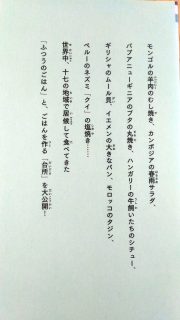 モンゴルの羊肉のむし焼き、カンボジアの春雨サラダ、
パプアニューギニアのブタの丸焼き、ハンガリーの牛飼いたちのシチュー、
ギリシャのムール貝、イエメンの大きなパン、モロッコのタジン、
ペルーのネズミ「クイ」の塩焼き……
世界中、十七の地域で居候して食べてきた
「ふつうのごはん」と、ごはんを作る「台所」を大公開！